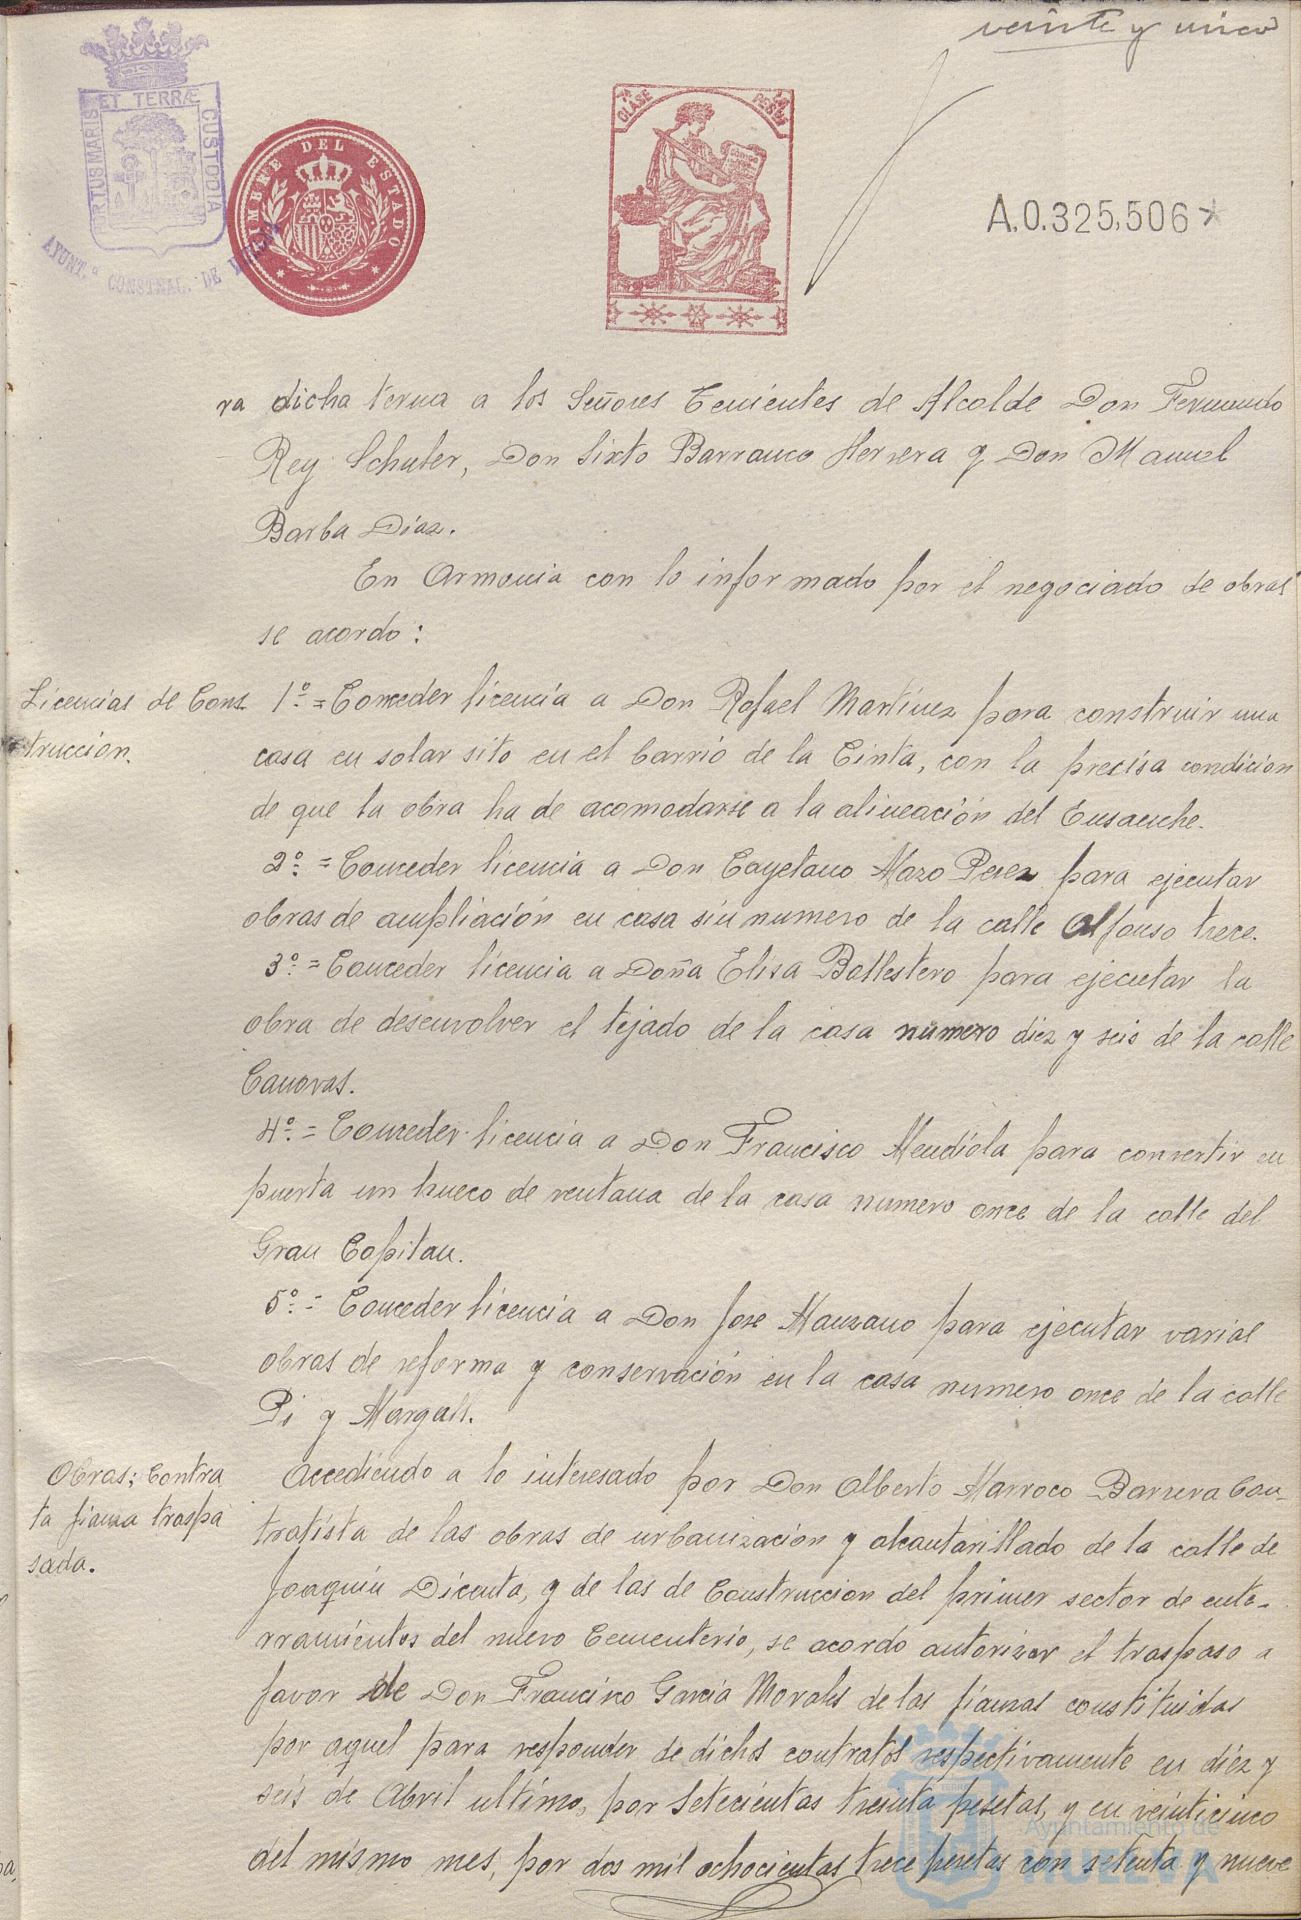 veinte y cinco
PORTUS MARIS ET TERRÆ CUSTODIA
AYUNT.º CONSTNAL. DE HUELVA
TIMBRE DEL ESTADO
CLASE
A.0.325,506*
ra dicha terna a los Señores Tenientes de Alcalde Don Fernando
Rey Schuter, Don Sixto Barranco Herrera y Don Manuel
Barba Diaz.
En Armonia con lo informado por el negociado de obras
se acordo:
Licencias de Cons
truccion.
1º = Conceder licencia a Don Rafael Martinez para construir una
casa en solar sito en el barrio de la Cinta, con la precisa condicion
de que la obra ha de acomodarse a la alineación del Ensanche.
2º = Conceder licencia a Don Cayetano Mazo Perez para ejecutar
obras de ampliación en casa sin numero de la calle Alfonso trece.
3º = Conceder licencia a Doña Elisa Ballestero para ejecutar la
obra de desenvolver el tejado de la casa numero diez y seis de la calle
Canovas.
4º = Conceder licencia a Don Francisco Mendiola para convertir en
puerta un hueco de ventana de la casa numero once de la calle del
Gran Capitan.
5º = Conceder licencia a Don Jose Manzano para ejecutar varias
obras de reforma y conservación en la casa numero once de la calle
Pi y Margall.
Obras; Contra
ta fianza traspa
sada.
Accediendo a lo interesado por Don Alberto Marroco Barrera Con-
tratista de las obras de urbanización y alcantarillado de la calle de
Joaquin Dicenta, y de las de Construccion del primer sector de ente-
rramientos del nuevo Cementerio, se acordo autorizar el traspaso a
favor de Don Francisco Garcia Morales de las fianzas constituidas
por aquel para responder de dichos contratos respectivamente en diez y
seis de Abril ultimo, por setecientas treinta pesetas, y en veinticinco
del mismo mes, por dos mil ochocientas trece pesetas con setenta y nueve
Ayuntamiento de
HUELVA